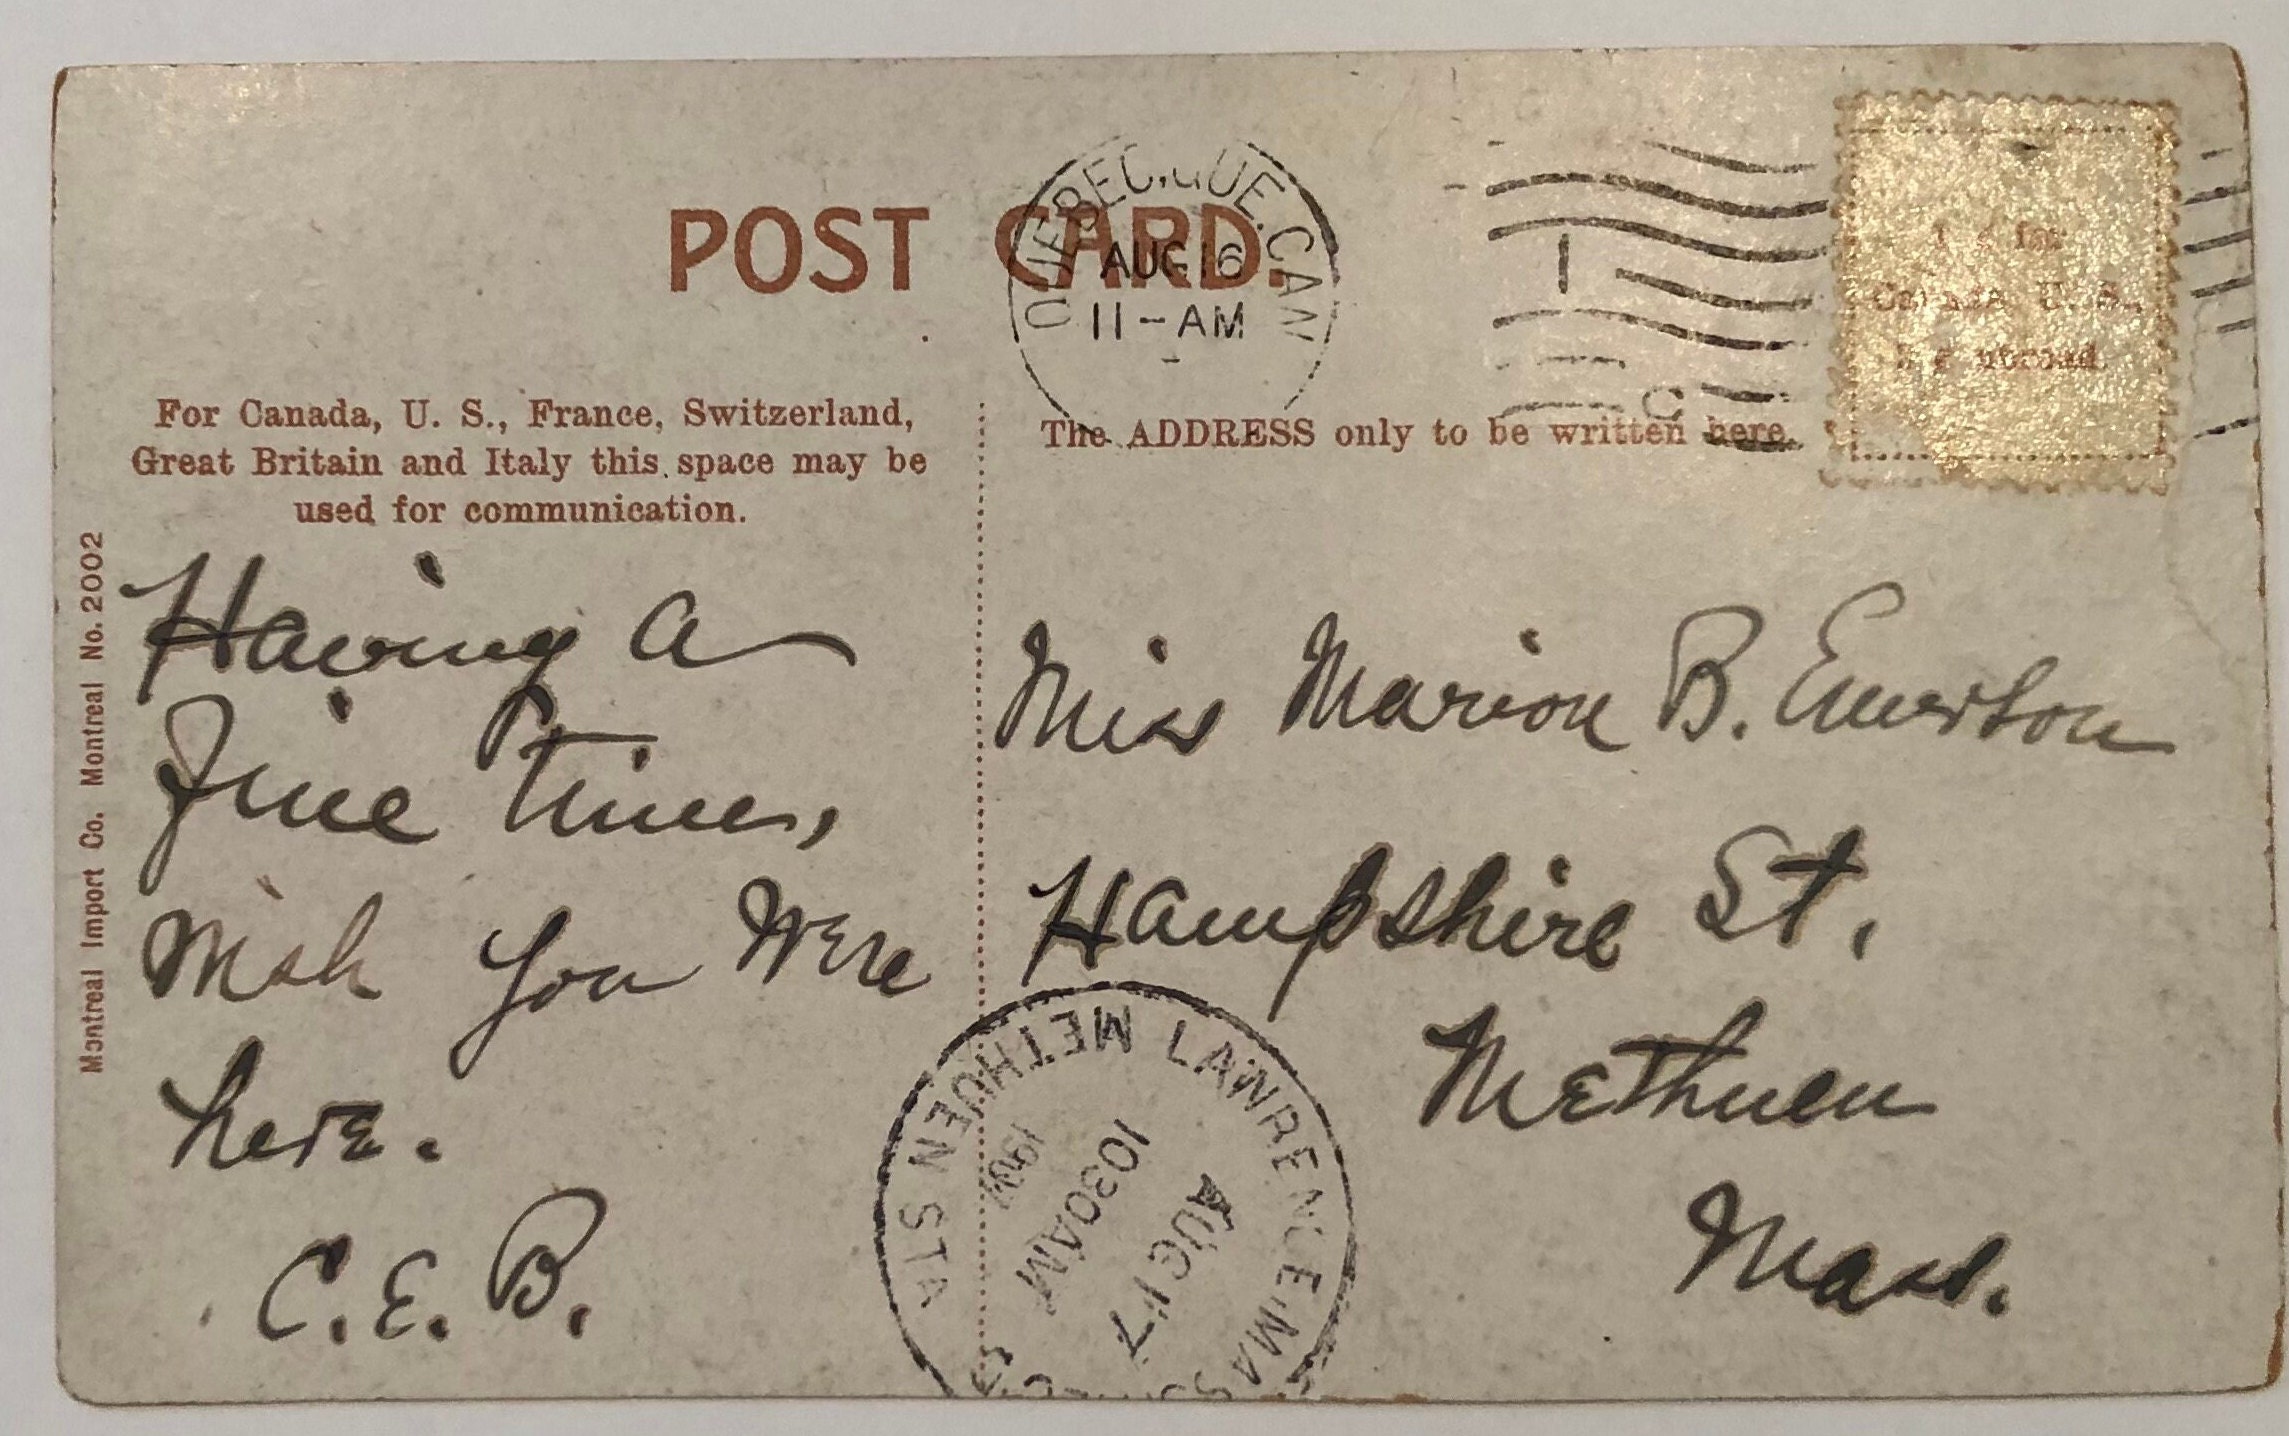 POST CARD.
QUEBEC, QUE. CAN
AUG 16
11-AM
1
C
1 ¢ for
Canada, U. S.,
2 ¢ abroad
For Canada, U. S., France, Switzerland,
Great Britain and Italy this space may be
used for communication.
The ADDRESS only to be written here.
Montreal Import Co. Montreal No. 2002
Having a
Fine Time,
Wish You Were
here.
C. E. B.
Miss Marion B. Emerson
Hampshire St.
Methuen
Mass.
LAWRENCE, MASS
METHUEN STA
AUG 17
1030AM